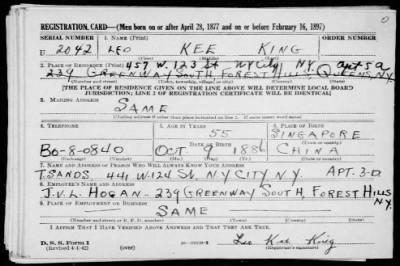 O
REGISTRATION CARD—(Men born on or after April 28, 1877 and on or before February 16, 1897)
SERIAL NUMBER 1. NAME (Print) ORDER NUMBER
U 2042 LEO KEE KING
457 W. 123 St NYCITY N.Y. apt 5a
2. PLACE OF RESIDENCE (Print)
239 GREENWAY SOUTH, FOREST HILLS QUEENS, N.Y.
[THE PLACE OF RESIDENCE GIVEN ON THE LINE ABOVE WILL DETERMINE LOCAL BOARD
JURISDICTION; LINE 2 OF REGISTRATION CERTIFICATE WILL BE IDENTICAL]
3. MAILING ADDRESS
SAME
[Mailing address if other than place indicated on line 2. If same insert word same]
4. TELEPHONE 5. AGE IN YEARS 6. PLACE OF BIRTH
55 SINGAPORE
DATE OF BIRTH
BO-8-0840 OCT 1886 CHINA
(Exchange) (Number) (Mo.) (Day) (Yr.) (State or country)
7. NAME AND ADDRESS OF PERSON WHO WILL ALWAYS KNOW YOUR ADDRESS
T. SANDS 441 W. 124 St. NY CITY N.Y. APT. 3-D
8. EMPLOYER'S NAME AND ADDRESS
J.V.L. HOGAN - 239 GREENWAY SOUTH, FOREST HILLS N.Y.
9. PLACE OF EMPLOYMENT OR BUSINESS
SAME
(Number and street or R. F. D. number) (Town) (County) (State)
I AFFIRM THAT I HAVE VERIFIED ABOVE ANSWERS AND THAT THEY ARE TRUE.
D. S. S. Form 1
(Revised 4-1-42) Leo Kee King